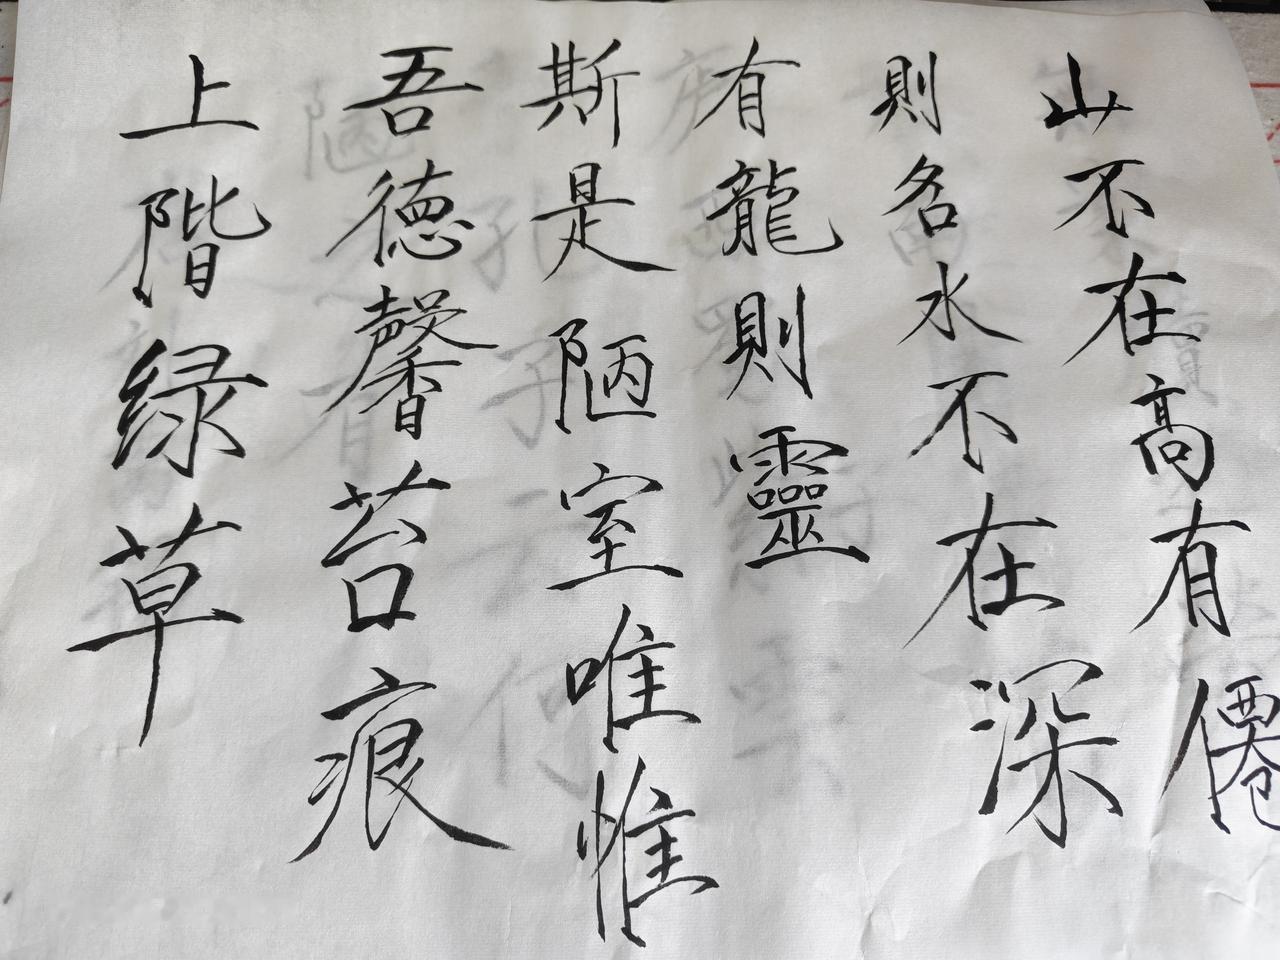 山不在高有僊
則名水不在深
有龍則靈
斯是陋室唯惟
吾德馨苔痕
上階绿草